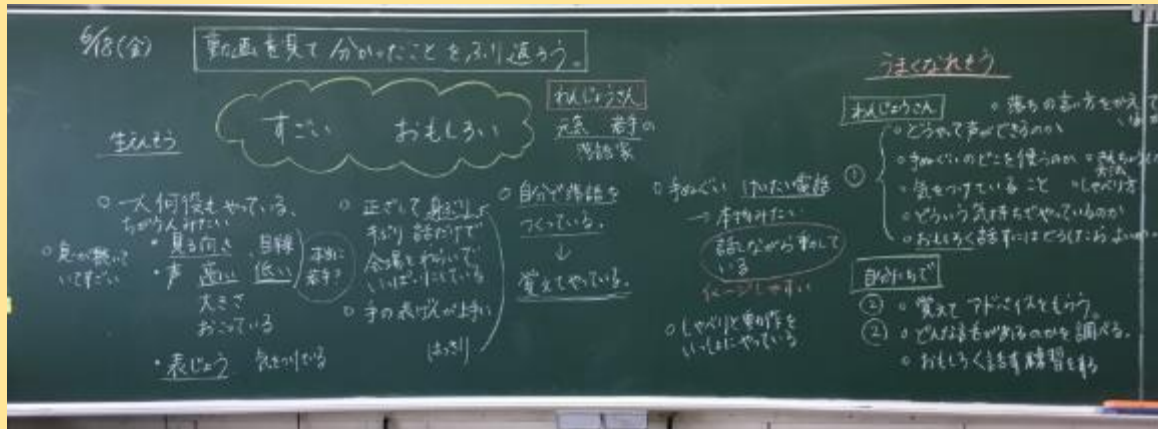 6/18(金)
動画を見て分かったことをふり返ろう。
すごい おもしろい
わんじょうさん
元気 若手の
落語家
生えんそう
○一人何役もやっている、
ちがう人みたい
・見る向き、目線
・声 高い 低い
大きさ
おこっている
・表じょう 気をつけている
いてすごい
本当に
若手?
○正ざして身ぶり
手ぶり 話だけで
会場をわらいで
いっぱいにしている
○手の表げんが上手い
はっきり
○自分で落語を
つくっている。
↓
覚えてやっている。
○手ぬぐい けいたい電話
→本物みたい
話しながら動かして
いる
イメージしやすい
○しゃべりと動作を
いっしょにやっている
うまくなれそう
わんじょうさん
○落ちの言い方をかえて
○どうやって声ができるのか
①
○手ぬぐいのどこを使うのか
○気をつけていること ○しゃべり方
○どういう気持ちでやっているのか
○おもしろく話すにはどうしたらよいか
自分たちで
② ○覚えてアドバイスをもらう。
② ○どんな落語があるのかを調べる。
○おもしろく話す練習をする